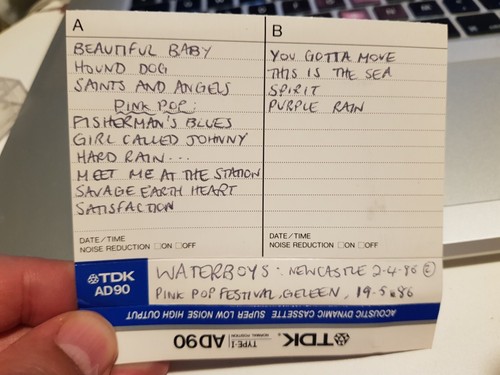 A
BEAUTIFUL BABY
HOUND DOG
SAINTS AND ANGELS
PINK POP:
FISHERMAN'S BLUES
GIRL CALLED JOHNNY
HARD RAIN...
MEET ME AT THE STATION
SAVAGE EARTH HEART
SATISFACTION
DATE/TIME
NOISE REDUCTION ☐ON ☐OFF
B
YOU GOTTA MOVE
THIS IS THE SEA
SPIRIT
PURPLE RAIN
DATE/TIME
NOISE REDUCTION ☐ON ☐OFF
TDK
AD90
WATERBOYS: NEWCASTLE 2-4-86 ②
PINK POP FESTIVAL, GELEEN, 19-5-86
ACOUSTIC DYNAMIC CASSETTE SUPER LOW NOISE HIGH OUTPUT
TDK. AD90 TYPE I
NORMAL POSITION